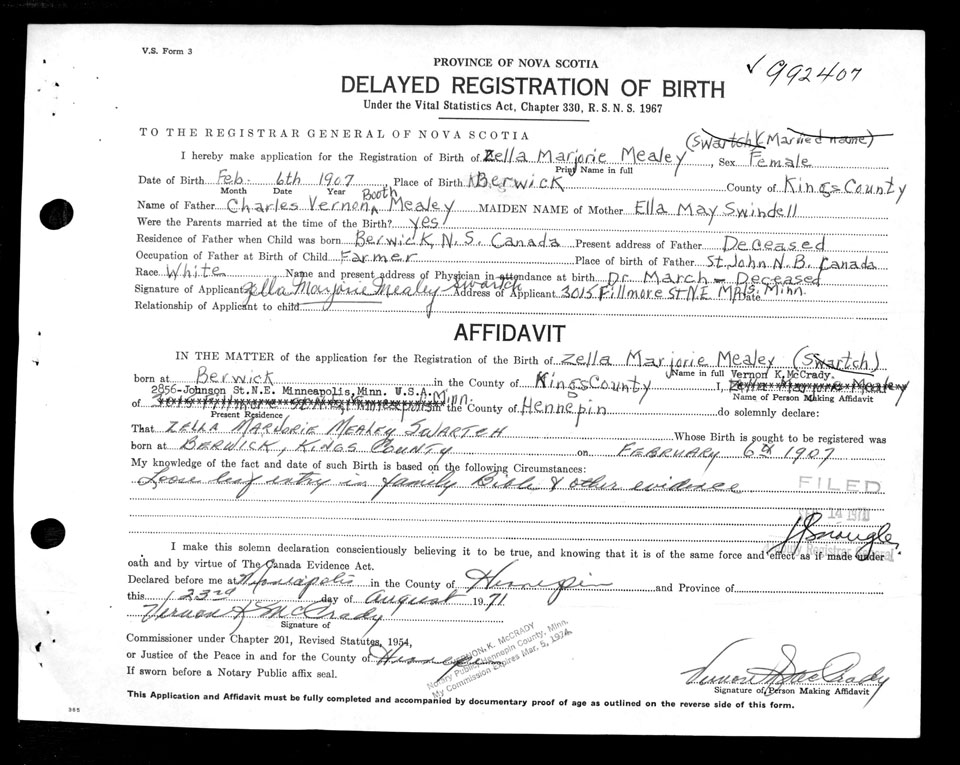 V.S. Form 3
PROVINCE OF NOVA SCOTIA
✓992407
DELAYED REGISTRATION OF BIRTH
Under the Vital Statistics Act, Chapter 330, R.S.N.S. 1967
TO THE REGISTRAR GENERAL OF NOVA SCOTIA
(Swartch (Married name)
I hereby make application for the Registration of Birth of Zella Marjorie Mealey, Sex Female
Print Name in full
Date of Birth Feb. 6th 1907 Place of Birth Berwick County of Kings County
Month Date Year
Booth
Name of Father Charles Vernon ^ Mealey MAIDEN NAME of Mother Ella May Swindell
Were the Parents married at the time of the Birth? yes
Residence of Father when Child was born Berwick, N.S. Canada Present address of Father Deceased
Occupation of Father at Birth of Child Farmer Place of birth of Father St. John N.B. Canada
Race White Name and present address of Physician in attendance at birth Dr. March - Deceased
Signature of Applicant Zella Marjorie Mealey Swartch Address of Applicant 3015 Fillmore St N.E. Mpls. Minn.
Date
Relationship of Applicant to child
AFFIDAVIT
IN THE MATTER of the application for the Registration of the Birth of Zella Marjorie Mealey (Swartch)
Name in full Vernon K. McCrady.
born at Berwick in the County of Kings County I, Zella Marjorie Mealey
Name of Person Making Affidavit
2856-Johnson St.N.E. Minneapolis, Minn. U.S.A.
of Minn. the County of Hennepin do solemnly declare:
Present Residence
That Zella Marjorie Mealey Swartch Whose Birth is sought to be registered was
born at Berwick, Kings County on February 6th 1907
My knowledge of the fact and date of such Birth is based on the following Circumstances:
Loose leaf entry in family Bible & other evidence
FILED
14 1971
I make this solemn declaration conscientiously believing it to be true, and knowing that it is of the same force and effect as if made under
oath and by virtue of The Canada Evidence Act.
Declared before me at Minneapolis in the County of Hennepin and Province of
this 23rd day of August 1971
Vernon K McCrady
Signature of
Commissioner under Chapter 201, Revised Statutes, 1954,
or Justice of the Peace in and for the County of Hennepin
If sworn before a Notary Public affix seal.
VERNON K. McCRADY
Notary Public, Hennepin County, Minn.
My Commission Expires Mar. 5, 1974
Vernon K McCrady
Signature of Person Making Affidavit
This Application and Affidavit must be fully completed and accompanied by documentary proof of age as outlined on the reverse side of this form.